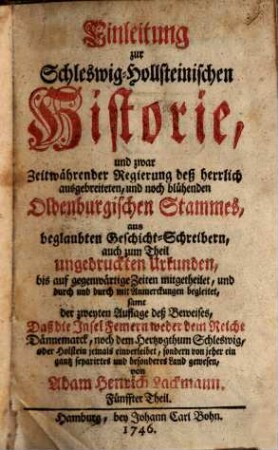 Einleitung
zur
Schleswig-Hollsteinischen
Historie,
und zwar
Zeitwährender Regierung deß herrlich
ausgebreiteten, und noch blühenden
Oldenburgischen Stammes,
aus
beglaubten Geschicht-Schreibern,
auch zum Theil
ungedruckten Urkunden,
bis auf gegenwärtige Zeiten mitgetheilet, und
durch und durch mit Anmerckungen begleitet,
samt
der zweyten Auflage deß Beweises,
Daß die Insel Femern weder dem Reiche
Dännemarck, noch dem Hertzogthum Schleswig,
oder Holstein jemals einverleibet, sondern von jeher ein
gantz separirtes und besonderes Land gewesen,
von
Adam Henrich Lackmann.
Fünffter Theil.
Hamburg, bey Johann Carl Bohn.
1746.